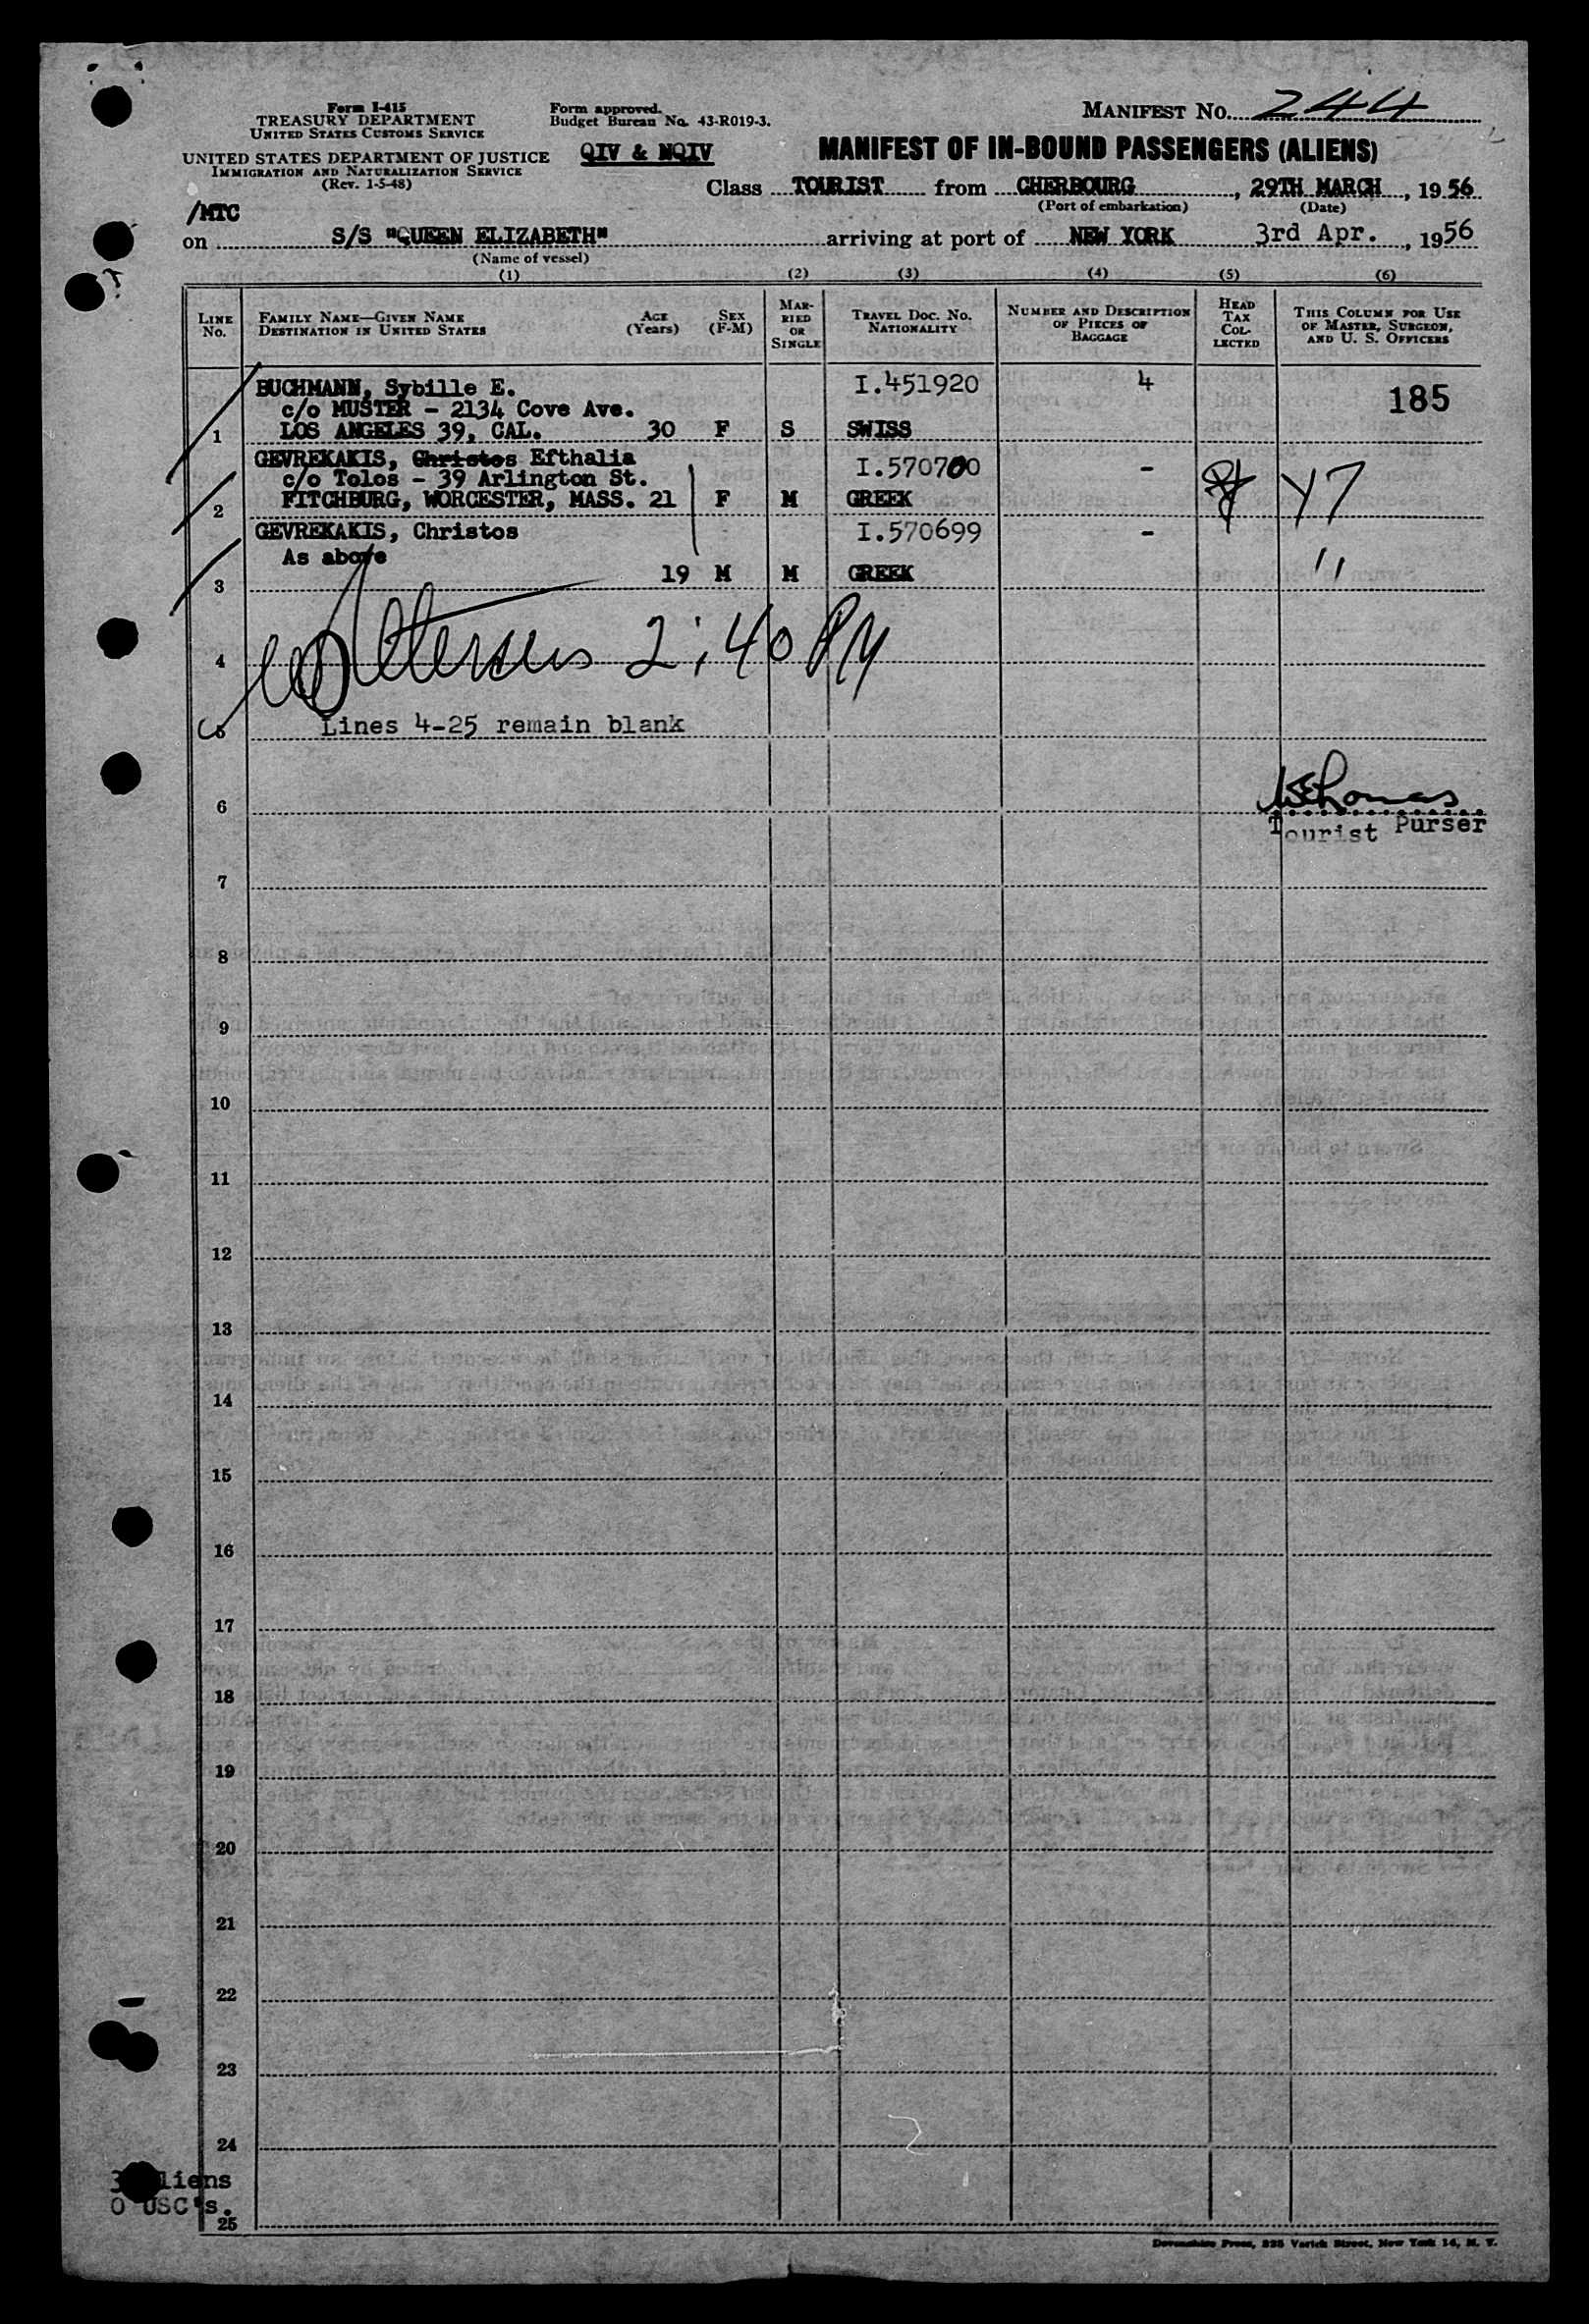 Form I-415
TREASURY DEPARTMENT
UNITED STATES CUSTOMS SERVICE
UNITED STATES DEPARTMENT OF JUSTICE
IMMIGRATION AND NATURALIZATION SERVICE
(Rev. 1-5-48)
Form approved.
Budget Bureau No. 43-R019-3.
QIV & NQIV
MANIFEST NO. 244
MANIFEST OF IN-BOUND PASSENGERS (ALIENS)
Class TOURIST from CHERBOURG, 29TH MARCH, 1956
(Port of embarkation) (Date)
/MTC
on S/S "QUEEN ELIZABETH" arriving at port of NEW YORK 3rd Apr., 1956
(Name of vessel)
(1) (2) (3) (4) (5) (6)
LINE No. FAMILY NAME—GIVEN NAME DESTINATION IN UNITED STATES AGE (Years) SEX (F-M) MARRIED OR SINGLE TRAVEL DOC. NO. NATIONALITY NUMBER AND DESCRIPTION OF PIECES OF BAGGAGE HEAD TAX COLLECTED THIS COLUMN FOR USE OF MASTER, SURGEON, AND U. S. OFFICERS
BUCHMANN, Sybille E. I.451920 4 185
c/o MUSTER - 2134 Cove Ave.
1 LOS ANGELES 39, CAL. 30 F S SWISS
GEVREKAKIS, Christos Efthalia I.570700 - Y7
c/o Tolos - 39 Arlington St.
2 FITCHBURG, WORCESTER, MASS. 21 F M GREEK
GEVREKAKIS, Christos I.570699 - "
As above
3 19 M M GREEK
4 2:40 PM
5 Lines 4-25 remain blank
6
Tourist Purser
7
8
9
10
11
12
13
14
15
16
17
18
19
20
21
22
23
24
3 Aliens
0 USC's.
25
Devonshire Press, 225 Varick Street, New York 14, N. Y.